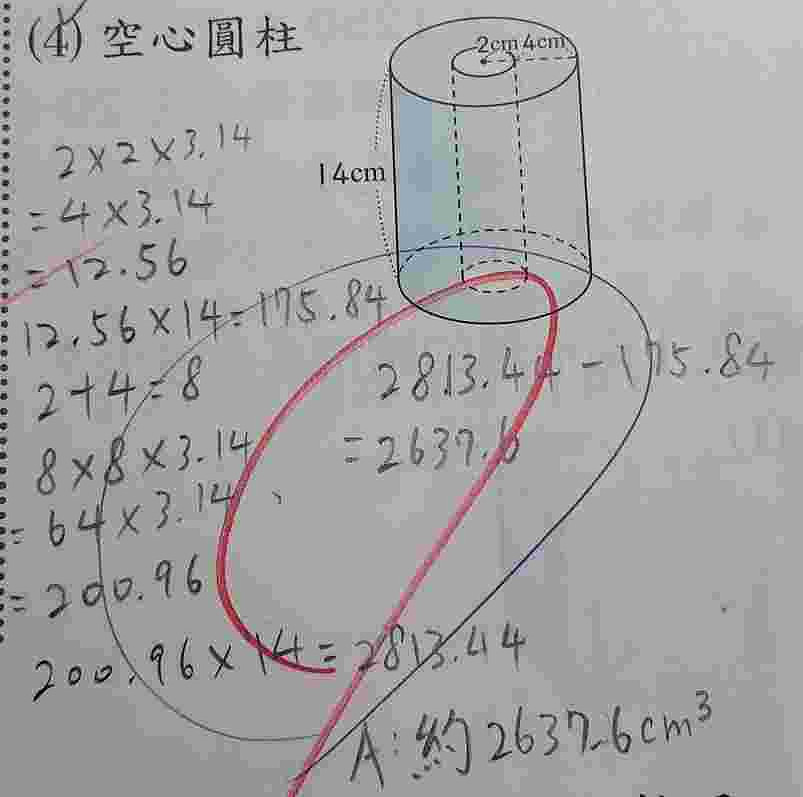 (4) 空心圓柱
2cm 4cm
14cm
2×2×3.14
=4×3.14
=12.56
12.56×14=175.84
2+4=8
8×8×3.14
=64×3.14
=200.96
200.96×14=2813.44
2813.44-175.84
=2637.6
A:約2637.6cm³